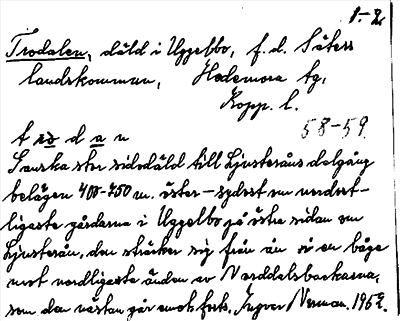 1.-2.
Trodalen, däld i Uggelbo, f. d. Säters
landskommun, Hedemora tg,
Kopp. l.
58-59.
t r o d a n
Ganska stor sidodäld till Ljusteråns dalgång
belägen 400-750 m. öster-sydost om nordost-
ligaste gårdarna i Uggelbo på östra sidan om
Ljusterån, den sträcker sig från ån i en båge
mot nordligaste änden av
som den nästan går emot forts. Ingvar Norman. 1952.